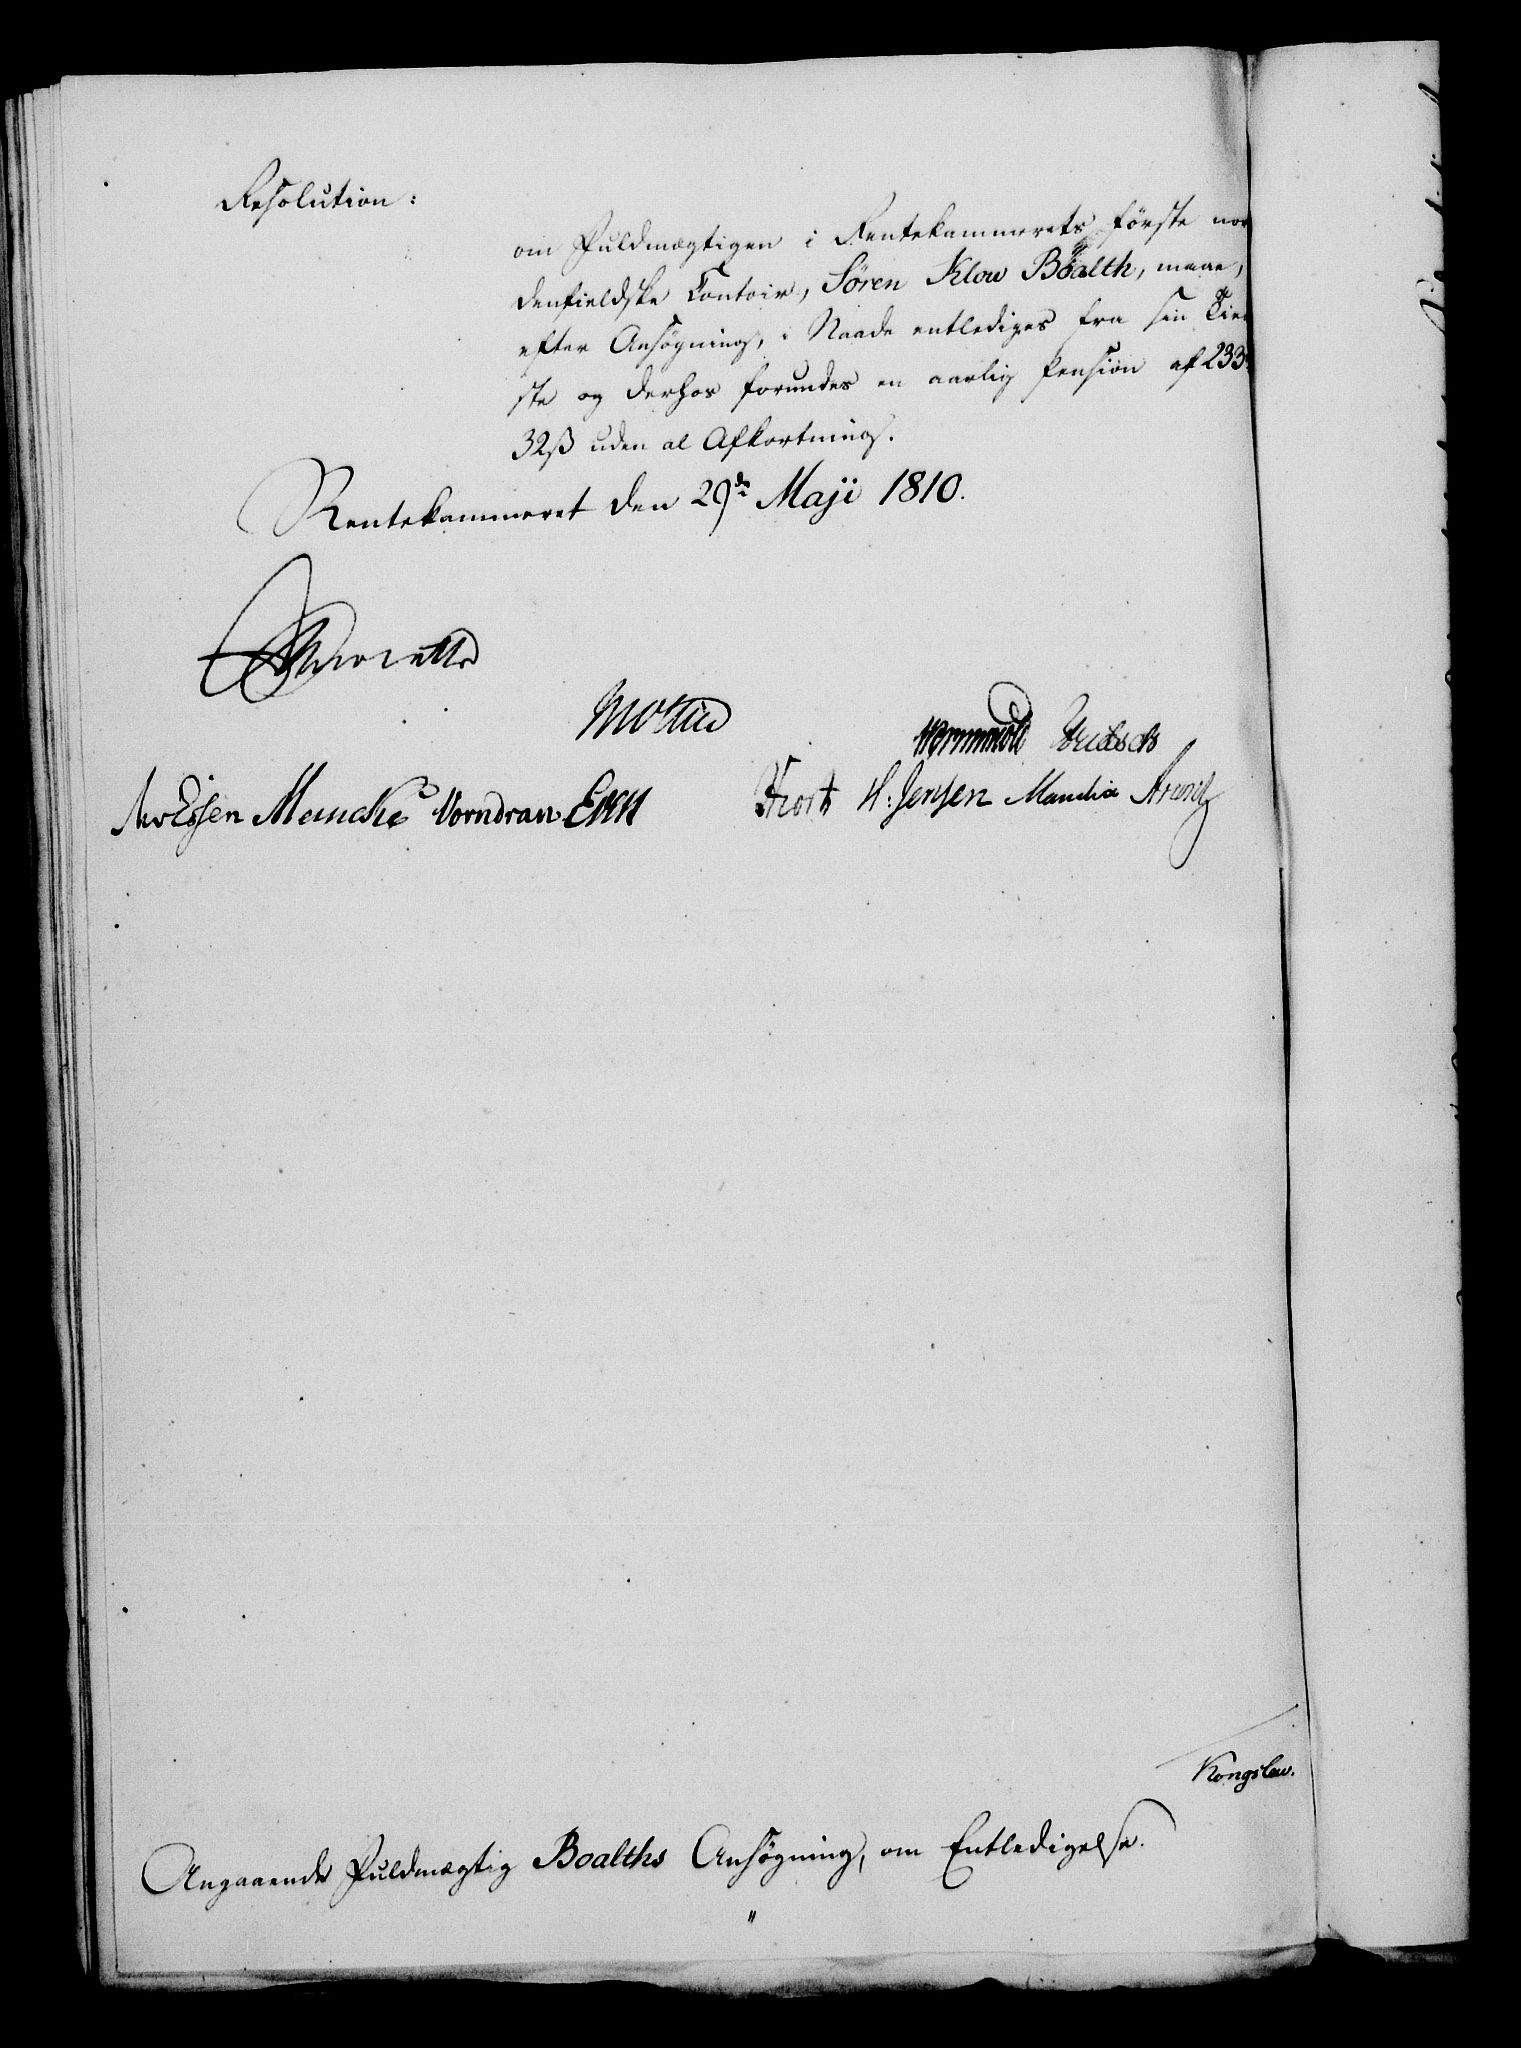 Resolution:
om Fuldmægtigen i Rentekammerets første nor
denfieldske Contoir, Søren Klow Boalth, maae,
efter Ansøgning, i Naade entlediges fra sin Tiene
ste og derhos forundes en aarlig Pension af 233
32ß uden al Afkortning.
Rentekammeret den 29de Maji 1810.
Wormskiold
Meincke Vorndran Even
H: Jensen Mandix
Kongslew.
Angaaende Fuldmægtig Boalths Ansøgning, om Entledigelse.
"